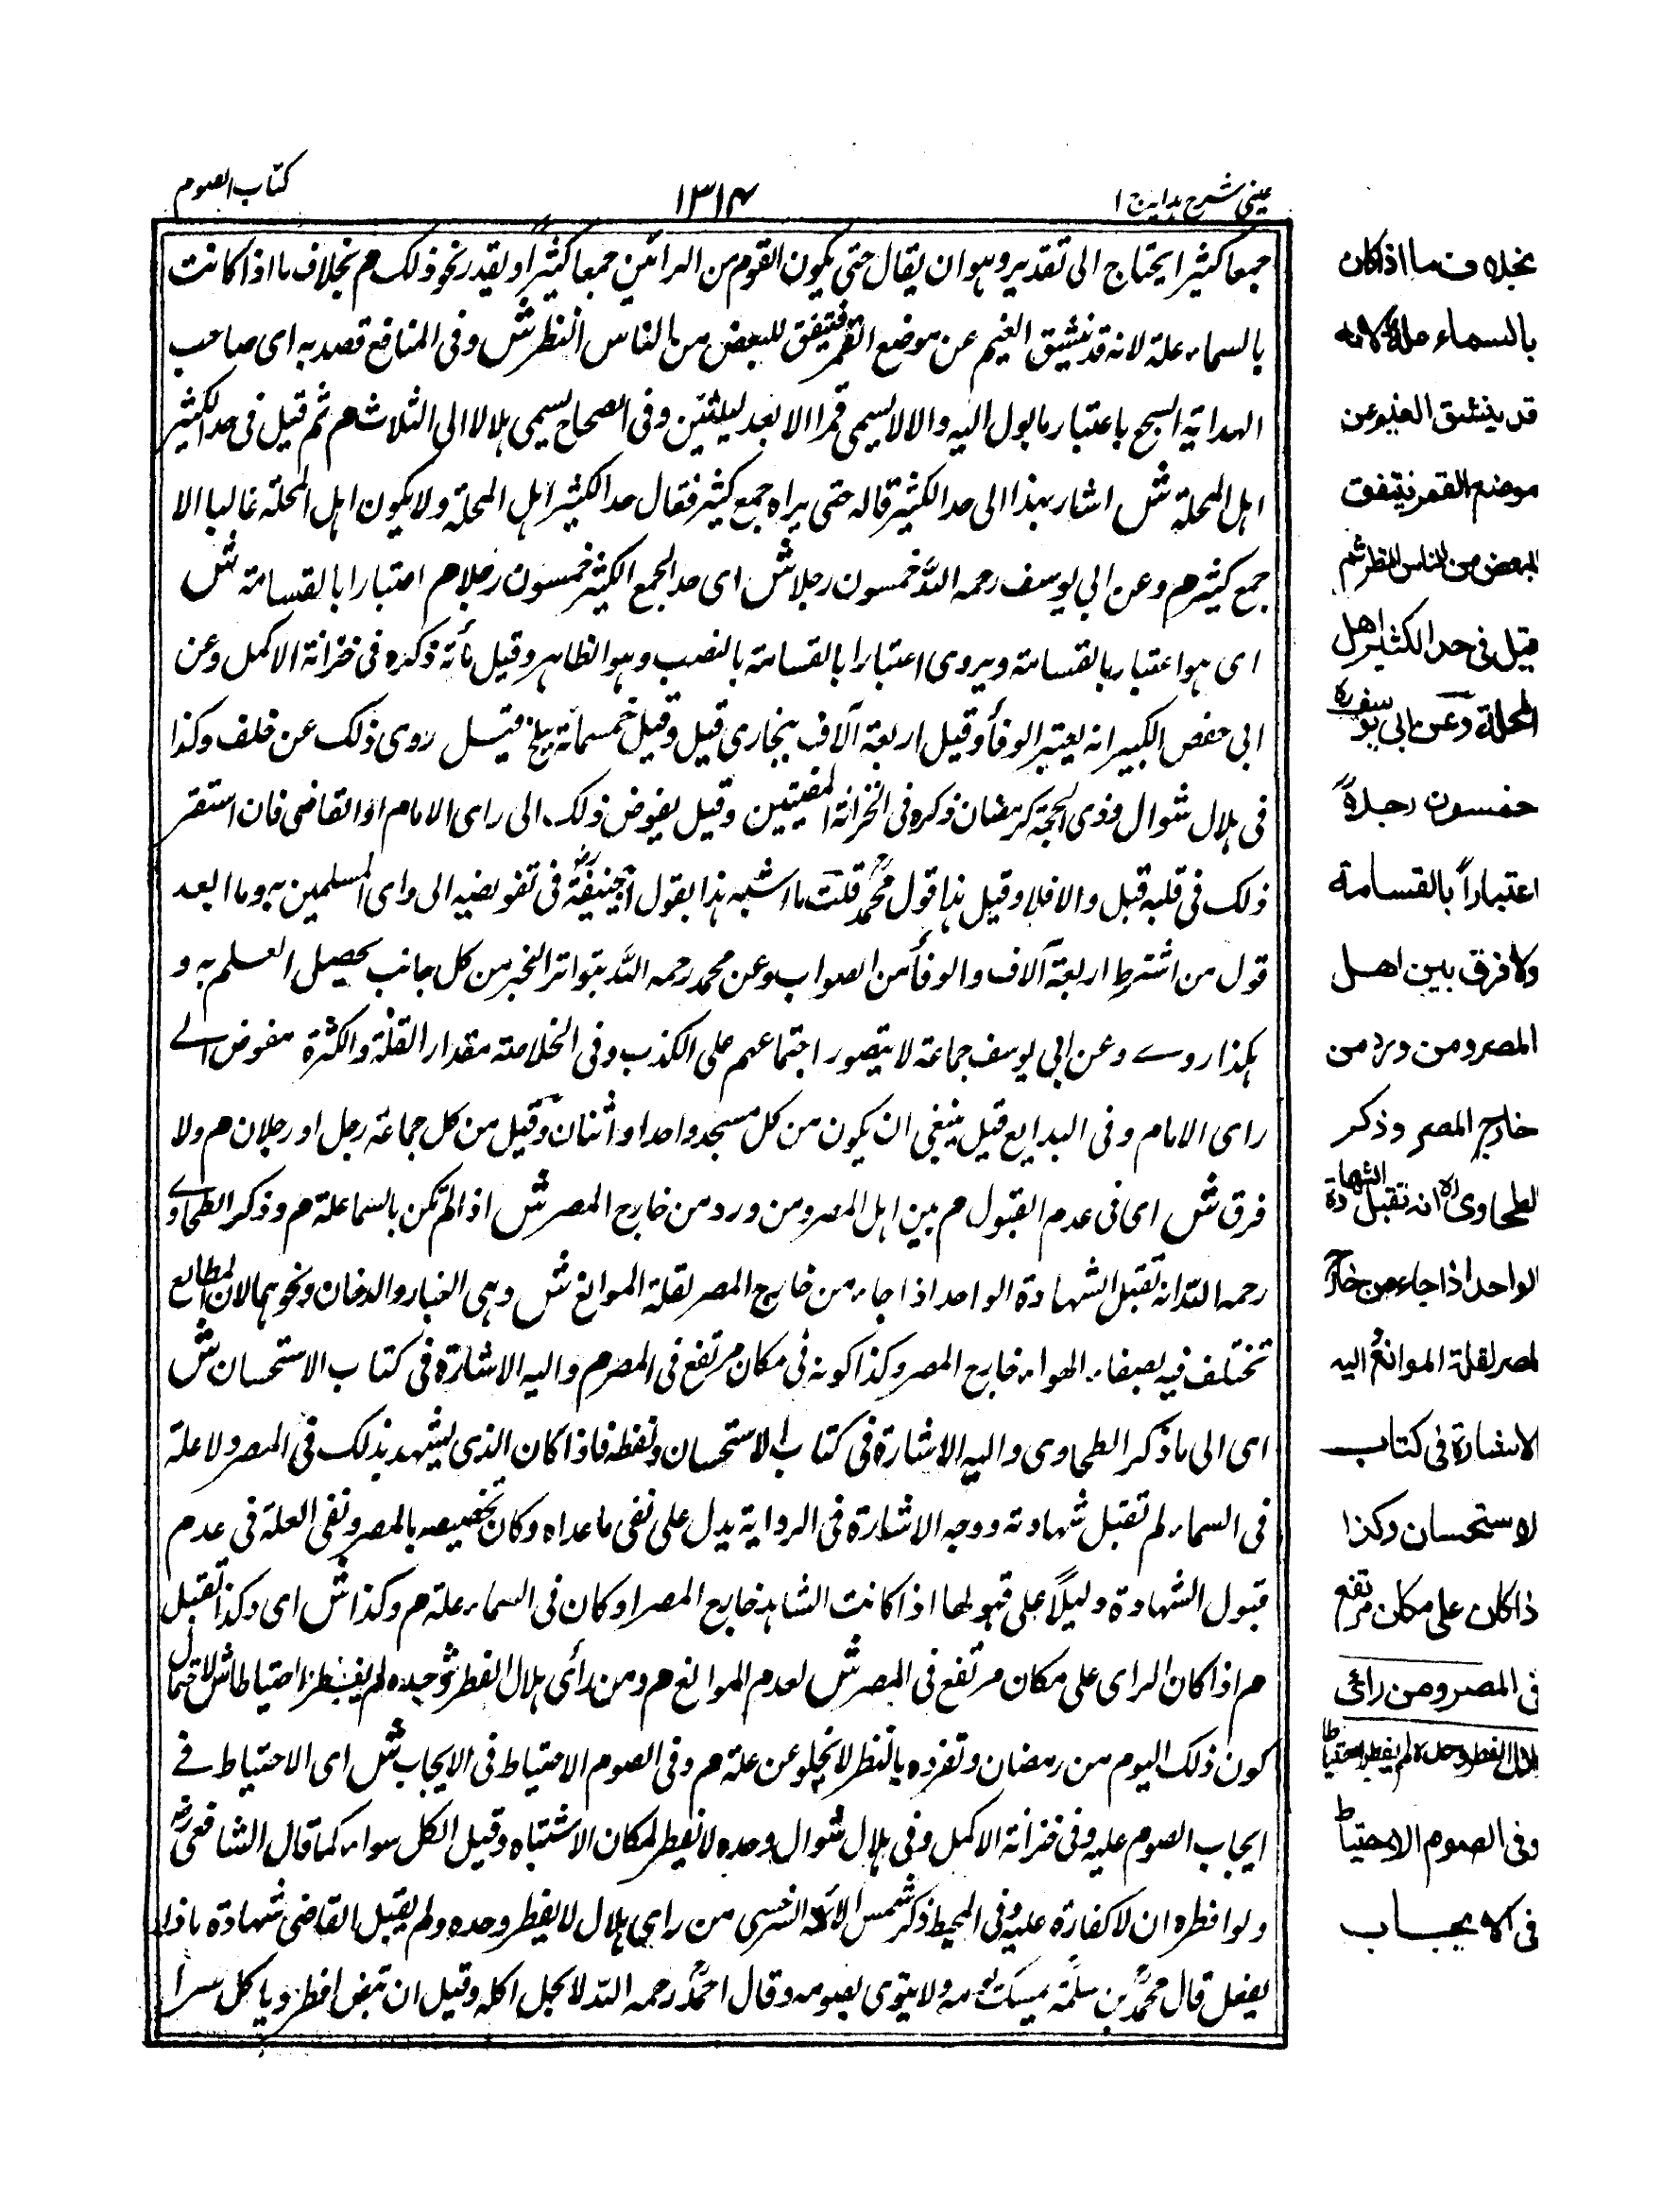 عینی شرح ہدایہ ج ۱
۱۳۱۴
کتاب الصوم
جمعا کثیرا یحتاج الی تقدیر وہو ان یقال حتی یکون القوم من الرائین جمعا کثیرا و یقدر نحو ذلک م بخلاف ما اذا کانت
بالسماء علة لانہ قد ینشق الغیم عن موضع القمر فیتفق للبعض من الناس النظر ش وفی المنافع قصد بہ ای صاحب
الہدایة السجع باعتبار ما یول الیہ والا لا یسمی قمرا الا بعد لیلتین وفی الصحاح یسمی ہلالا الی الثلاث م ثم قیل فی حد الکثیر
اہل المحلة ش اشار بہذا الی حد الکثیر قالہ حتی یراہ جمع کثیر فقال حد الکثیر اہل المحلة ولا یکون اہل المحلة غالبا الا
جمع کثیر م وعن ابی یوسف رحمہ اللہ خمسون رجلا ش ای حد الجمع الکثیر خمسون رجلا م اعتبارا بالقسامة ش
ای ہو اعتبار بالقسامة ویروی اعتبارا بالقسامة بالنصب وہو الظاہر وقیل مأتہ ذکرہ فی خزانة الاکمل وعن
ابی حفص الکبیر انہ یعتبر الوفا وقیل اربعة آلاف ببخاری قیل وقیل خمسمائة ببلخ قیل روی ذلک عن خلف وکذا
فی ہلال شوال وذی الحجة کرمضان ذکرہ فی الخزانة المفیتین وقیل یفوض ذلک الی رای الامام او القاضی فان استقر
ذلک فی قلبہ قبل والا فلا وقیل ہذا قول محمد قلت ما اشبہ ہذا بقول ابیحنیفة فی تفویضہ الی رای المسلمین بہ وما ابعد
قول من اشترط اربعة آلاف والوفا من الصواب وعن محمد رحمہ اللہ بتواتر الخبر من کل جانب یحصیل العلم بہ و
ہکذا روے وعن ابی یوسف جماعة لا یتصور اجتماعہم علی الکذب وفی الخلاصة مقدار القلة والکثرة مفوض الے
رای الامام وفی البدایع قیل ینبغی ان یکون من کل مسجد واحد او اثنان وقیل من کل جماعة رجل او رجلان م ولا
فرق ش ای فی عدم القبول م بین اہل المصر ومن ورد من خارج المصر ش اذا لم تکن بالسما علة م وذکر الطحاوے
رحمہ اللہ انہ تقبل الشہادة الواحد اذا جاء من خارج المصر لقلة الموانع ش وہی الغبار والدخان ونحوہما لان المطالع
تختلف فیہ بصفاء الہواء خارج المصر وکذا کونہ فی مکان مرتفع فی المصر م والیہ الاشارة فی کتاب الاستحسان ش
ای الی ما ذکر الطحاوی والیہ الاشارة فی کتاب الاستحسان ولفظہ فاذا کان الذی یشہد بذلک فی المصر ولا علة
فی السماء لم تقبل شہادتہ ووجہ الاشارة فی الروایة یدل علی نفی ما عداہ وکان تخصیصہ بالمصر ونفی العلة فی عدم
قبول الشہادة دلیلا علی قبولہا اذا کانت الشاہد خارج المصر او کان فی السماء علة م وکذا ش ای وکذا تقبل
م اذا کان الرای علی مکان مرتفع فی المصر ش لعدم الموانع م ومن رأی ہلال الفطر وحدہ لم یفطر احتیاطا ش لاحتمال
کون ذلک الیوم من رمضان وتفردہ بالنظر لا یخلو عن علة م وفی الصوم الاحتیاط فی الایجاب ش ای الاحتیاط فے
ایجاب الصوم علیہ وفی خزانة الاکمل وفی ہلال شوال وحدہ لا یفطر لمکان الاشتباہ وقیل الکل سواء کما قال الشافعی
ولو افطرہ ان لا کفارة علیہ وفی المحیط ذکر شمس الائمة السرخسی من رای ہلال لا یفطر وحدہ ولم یقبل القاضی شہادة ماذا
یفعل قال محمد بن سلمة یمسک یومہ ولا ینوی بصومہ وقال احمد رحمہ اللہ لا یحل اکلہ وقیل ان تیقن افطر ویاکل سرا
بخلاف ما اذا کان
بالسماء علة لانہ
قد ینشق الغیم عن
موضع القمر فیتفق
للبعض من الناس النظر ثم
قیل فی حد الکثیر اهل
المحلة وعن ابی یوسف رہ
خمسون رجلاً
اعتباراً بالقسامة
ولا فرق بین اهل
المصر ومن ورد من
خارج المصر وذکر
لطحاوی رہ انہ تقبل الشهادة
الواحد اذا جاء من خارج
لمصر لقلة الموانع و الیہ
الاشارة فی کتاب
لاستحسان وکذا
ذا کان علی مکان مرتفع
فی المصر ومن رأی
هلال الفطر وحدہ لم یفطر احتیاطا
وفی الصوم الاحتیاط
فی الایجاب